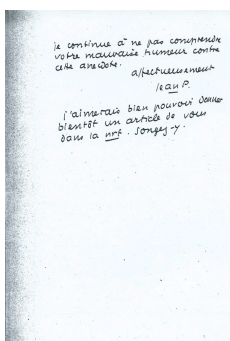 je continue à ne pas comprendre
votre mauvaise humeur contre
cette anecdote.
affectueusement
Jean P.
j'aimerais bien pouvoir donner
bientôt un article de vous
dans la nrf. Songez-y.